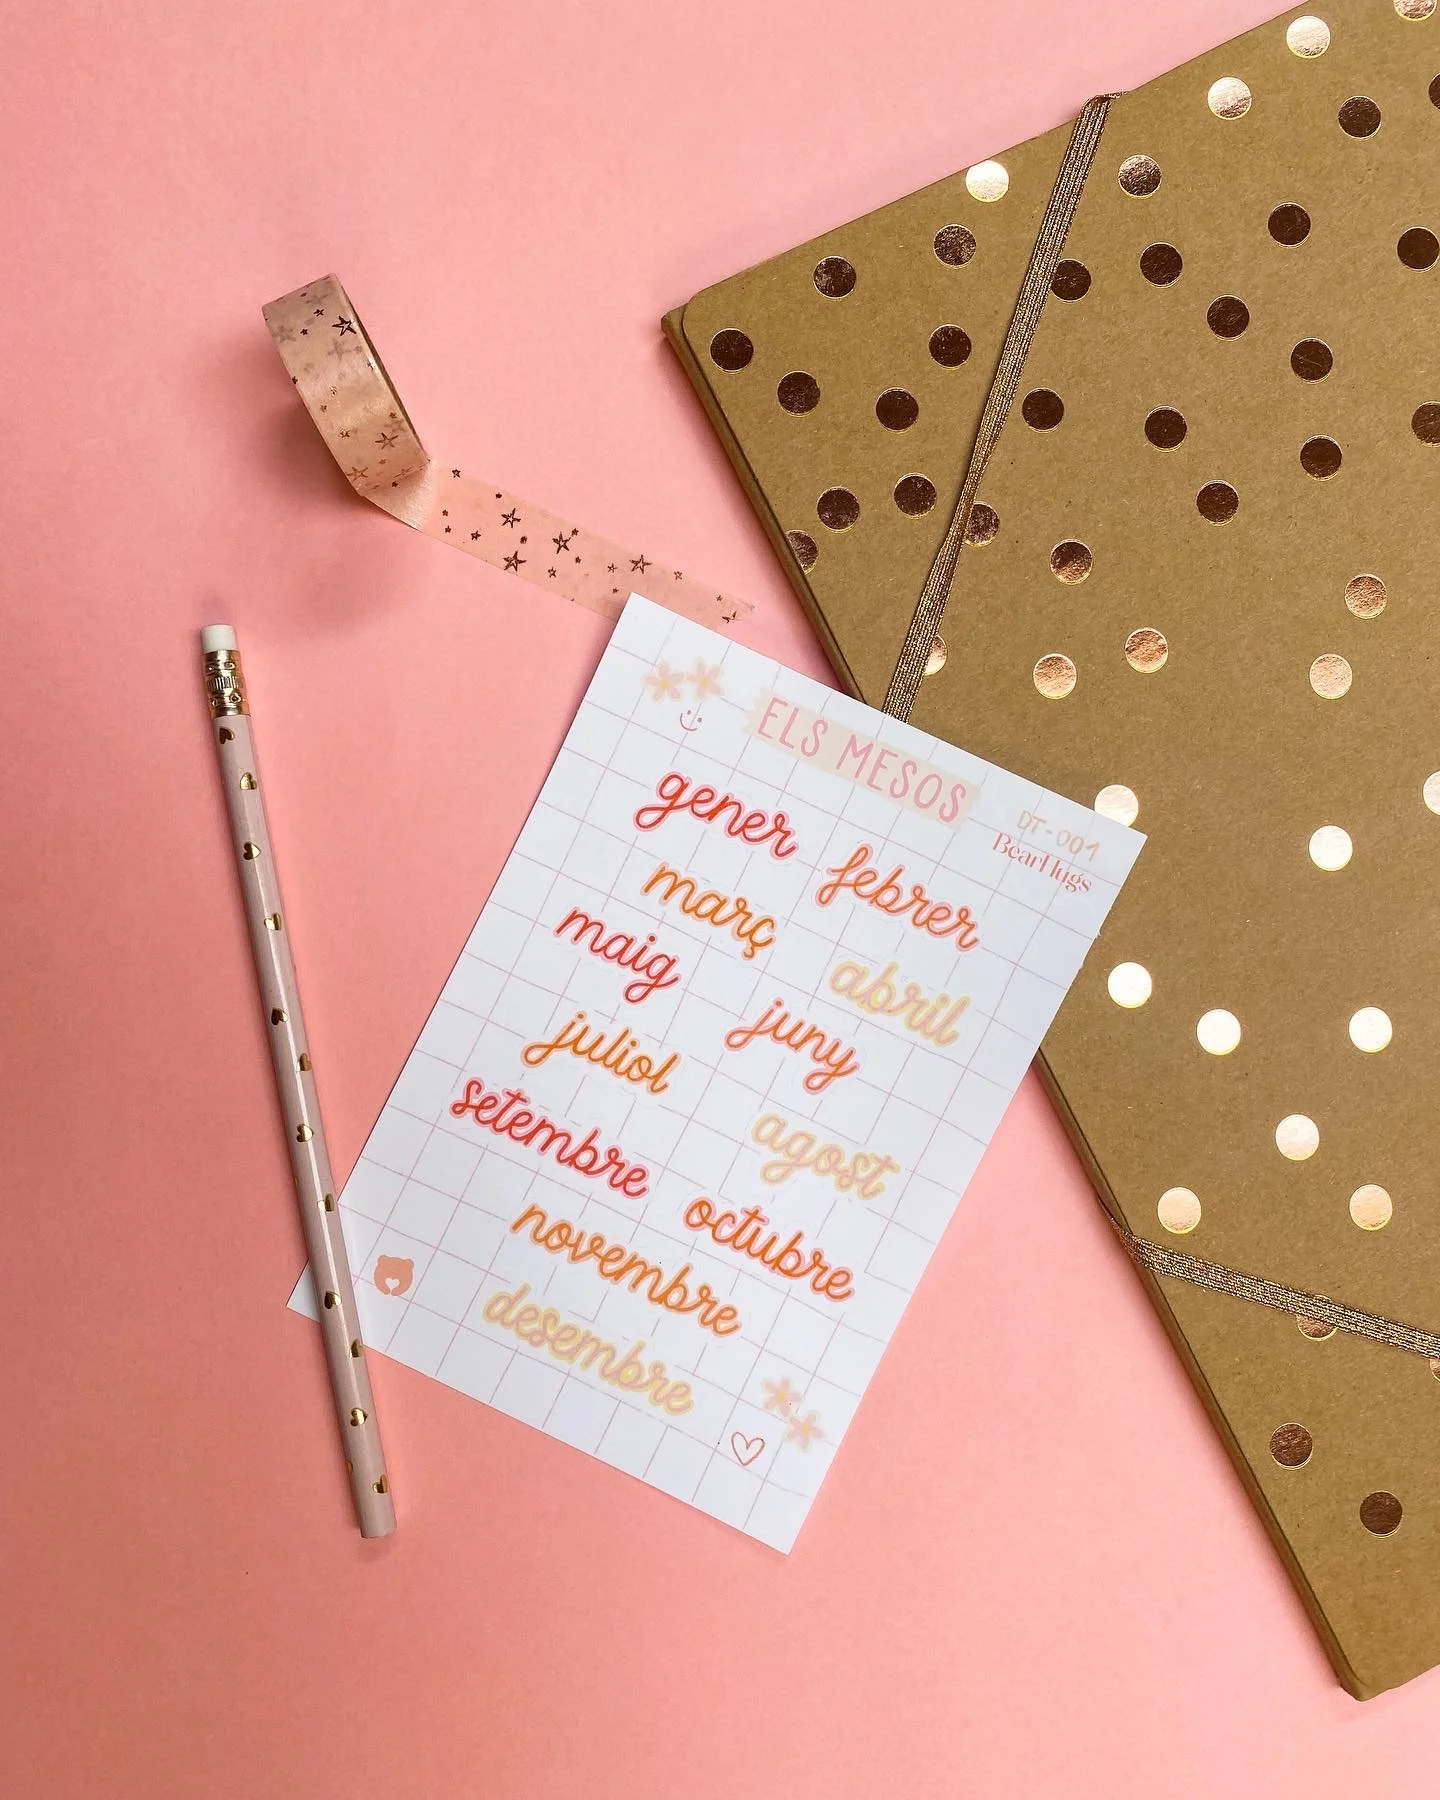 ELS MESOS
DT-001
BearHugs
gener
febrer
març
abril
maig
juny
juliol
agost
setembre
octubre
novembre
desembre